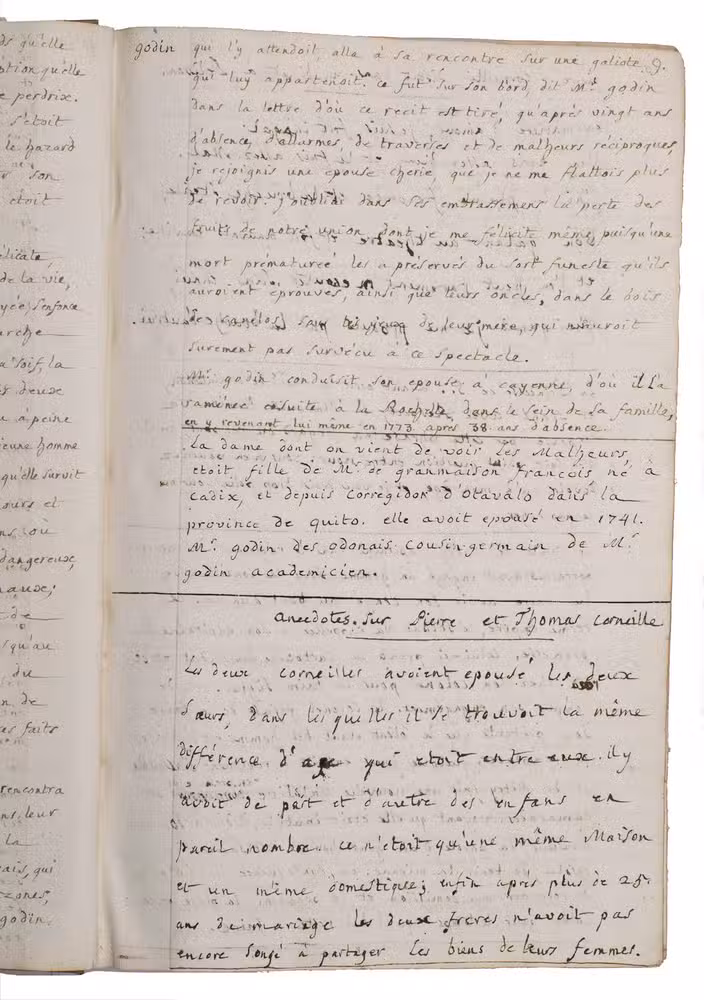 ds qu'elle
ption qu'elle
e perdrix.
s'étoit
le hazard
son
étoit
élicate
de la vie,
s'enfonce
arche
a soif, la
deuxe
à peine
jeune homme
qu'elle survit
jours et
ns, où
dangereuxe,
maux;
de
squ'au
du
n de
as faits
rencontra
ns leur
la
ais, qui
zônes,
godin
godin
9.
qui l'y attendoit alla à sa rencontre sur une galiote
qui luy appartenoit. ce fut sur son bord, dit Mr. godin
dans la lettre d'où ce recit est tiré, qu'après vingt ans
d'absence, d'allarmes, de traverses et de malheurs réciproques,
je rejoignis une epouse cherie, que je ne me flattois plus
de revoir. j'oubliai dans ses embrassemens la perte des
fruits de notre union, dont je me félicite même, puisqu'une
mort prématureé les a préservés du sort funeste qu'ils
auroient eprouvés, ainsi que leurs oncles, dans le bois
de canelos, sous les yeux de leur mere, qui n'auroit
surement pas survécu à ce spectacle.
Mr. godin conduisit son epouse à cayenne, d'où il l'a
rameneé ensuite à la Rochelle dans le sein de sa famille,
en y revenant lui même en 1773 après 38 ans d'absence.
La dame dont on vient de voir les Malheurs
etoit fille de Mr. de granmaison françois né à
cadix, et depuis corregidor d'otavalo dans la
province de quito. elle avoit epousé en 1741.
Mr. godin des odonais cousin germain de Mr.
godin academicien.
anecdotes. sur Pierre et Thomas corneille
Les deux corneilles avoient epousé les deux
sœurs, dans lesquelles il se trouvoit la même
différence d'age qui etoit entre eux. il y
avoit de part et d'autre des enfans en
pareil nombre. ce n'étoit qu'une même Maison
et un même domestique; enfin après plus de 25.
ans de mariage les deux freres n'avoit pas
encore songé à partager les biens de leurs femmes.